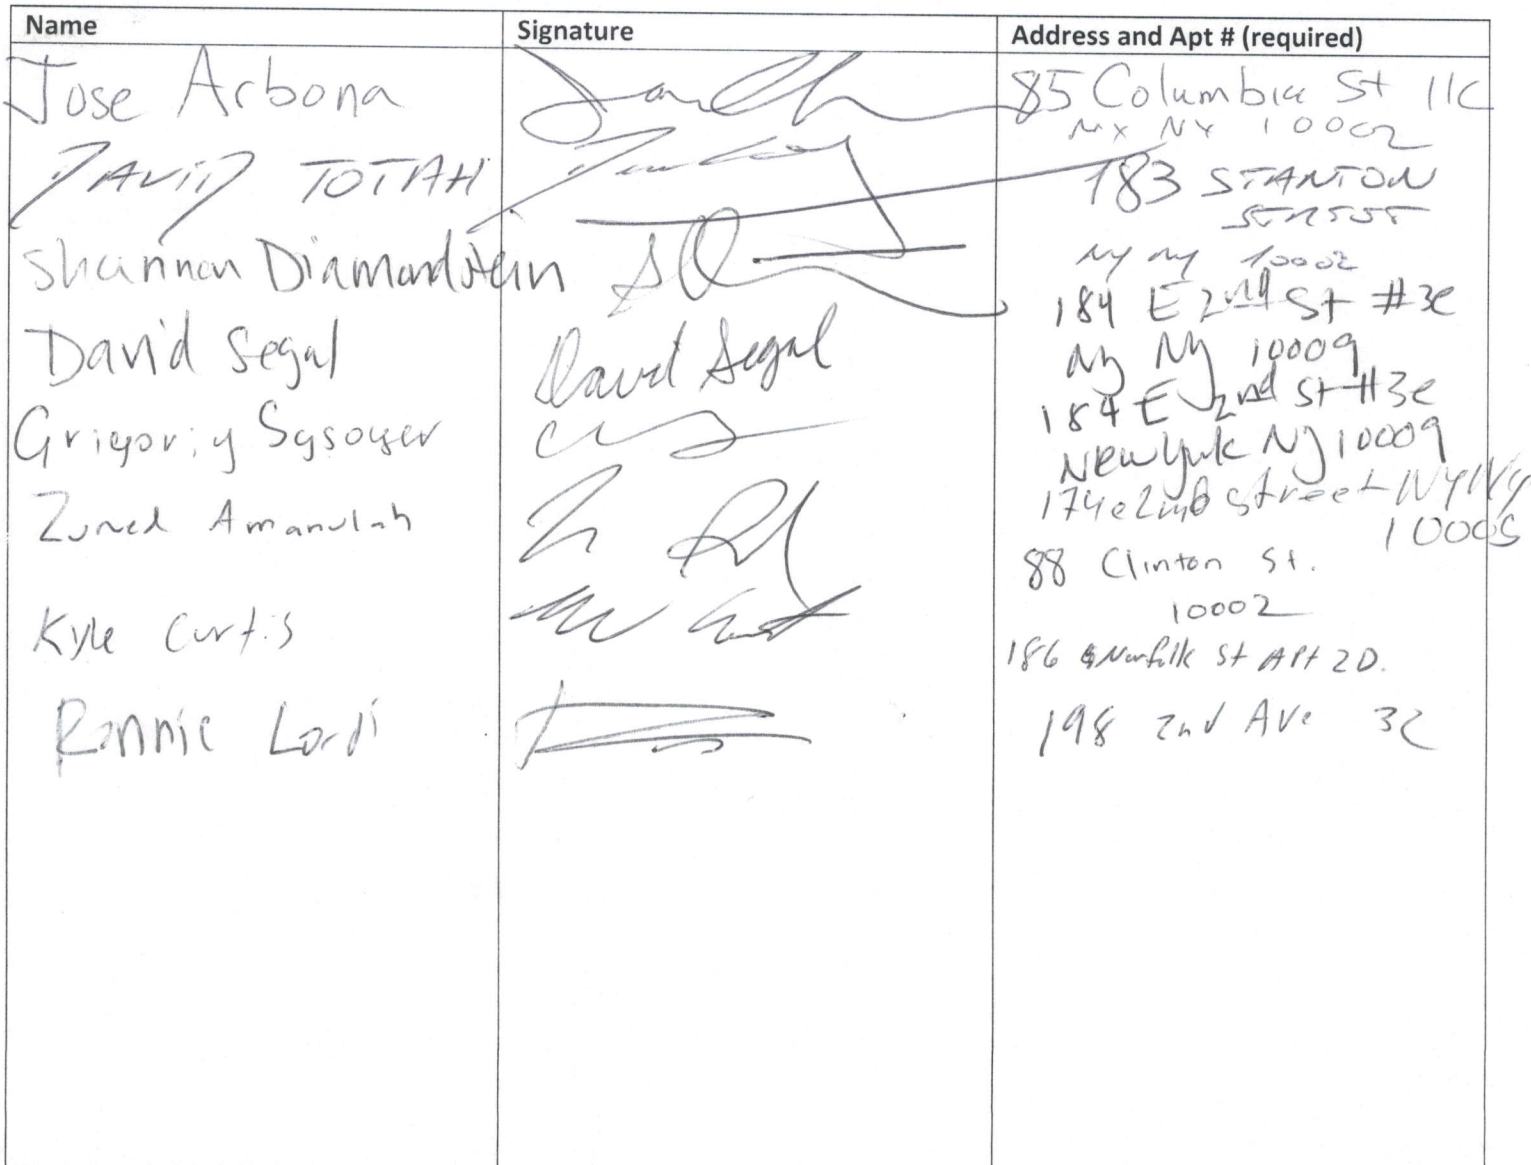 Name Signature Address and Apt # (required)
Jose Arbona 85 Columbia St 11C
NY NY 10002
DAVID TOTAH 183 STANTON
STREET
NY NY 10002
Shannon Diamondstein 184 E 2nd St #3e
NY NY 10009
David Segal David Segal 184 E 2nd St #3e
New York NY 10009
Grigoriy Sysoyev 174 e 2nd street NY NY
1000
Zuned Amanulah 88 Clinton St.
10002
Kyle Curtis 186 Norfolk St APt 2D.
Ronnie Lordi 198 2nd AVe